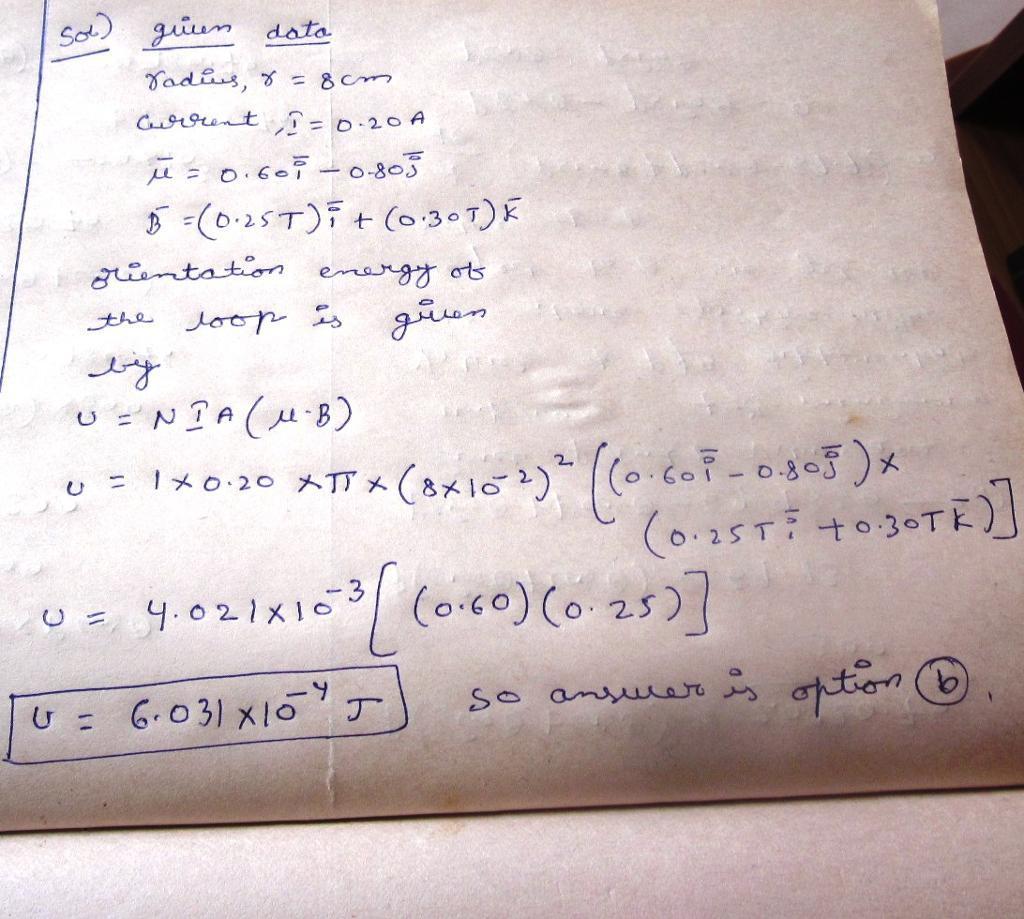 Sol) given data
radius, r = 8cm
current, I = 0.20A
μ̄ = 0.60ī - 0.80j̄
B̄ = (0.25T)ī + (0.30T)k̄
orientation energy of
the loop is given
by
U = NIA(μ·B)
U = 1×0.20 ×π×(8×10⁻²)² [(0.60ī - 0.80j̄)×
(0.25Tī + 0.30Tk̄)]
U = 4.021×10⁻³[(0.60)(0.25)]
U = 6.031×10⁻⁴ J so answer is option (b).